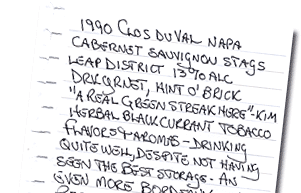 1990 CLOS DU VAL NAPA
CABERNET SAUVIGNON STAGS
LEAP DISTRICT 13% ALC
DRK GRNET, HINT O' BRICK
"A REAL GREEN STREAK HERE"-KIM
HERBAL BLACK CURRANT TOBACCO
FLAVORS & AROMAS - DRINKING
QUITE WELL, DESPITE NOT HAVING
SEEN THE BEST STORAGE - AN
EVEN MORE